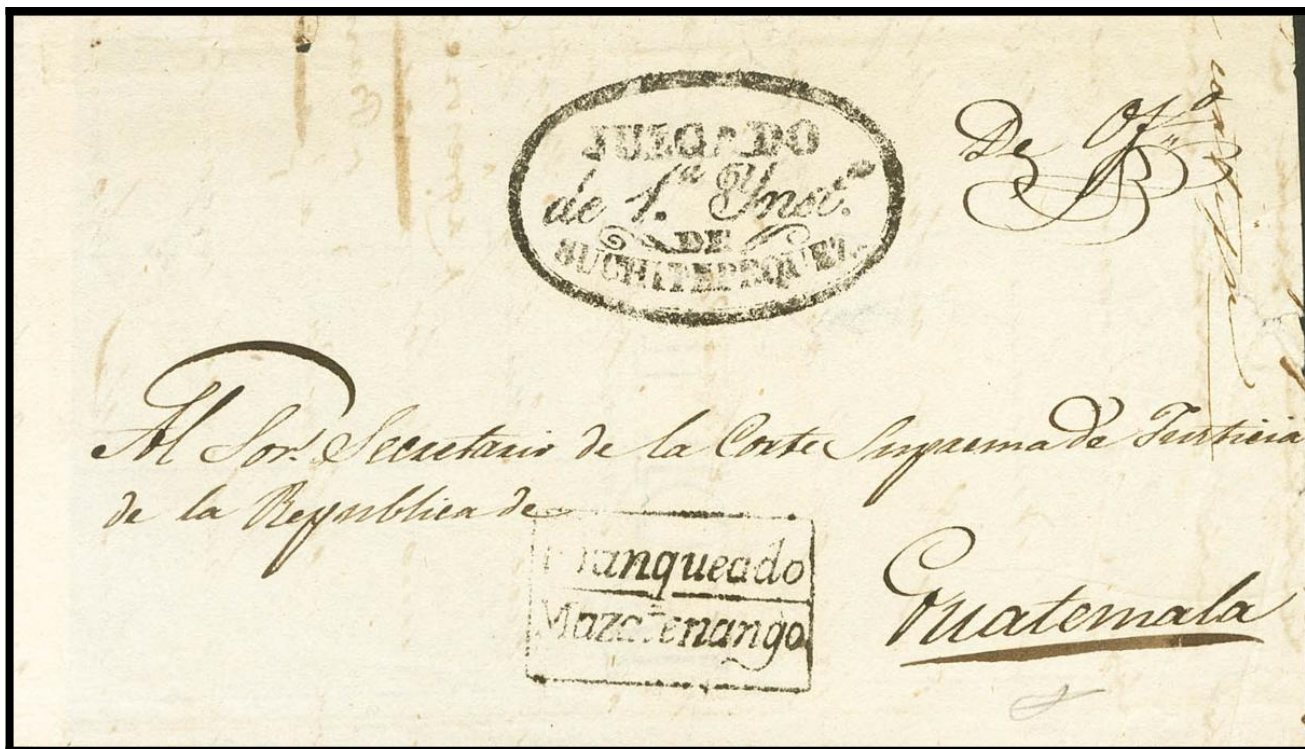 JUZGADO
de 1.ª Ynst.ª
DE
SUCHITEPEQUEZ.
De Ofº
Al Sor. Secretario de la Corte Suprema de Justicia
de la Republica de
Guatemala
Franqueado
Mazatenango